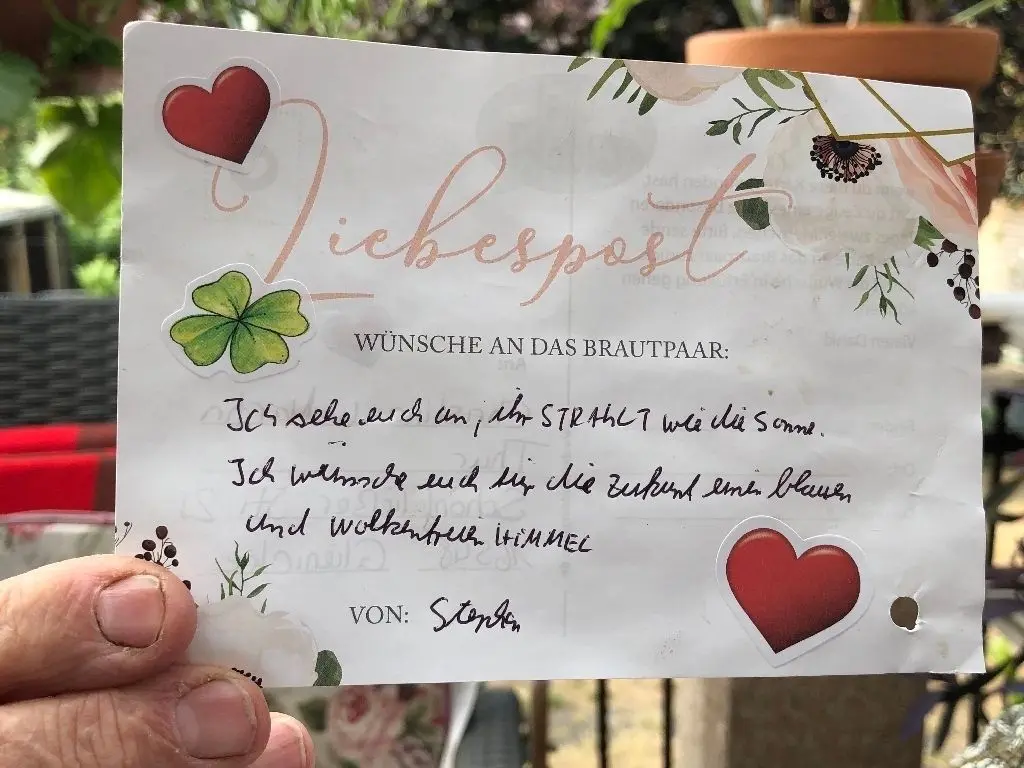 Liebespost
WÜNSCHE AN DAS BRAUTPAAR:
Ich sehe euch an, ihr STRAHLT wie die Sonne.
Ich wünsche euch für die Zukunft einen blauen
und wolkenfreien HiMMEL
VON: Stephan